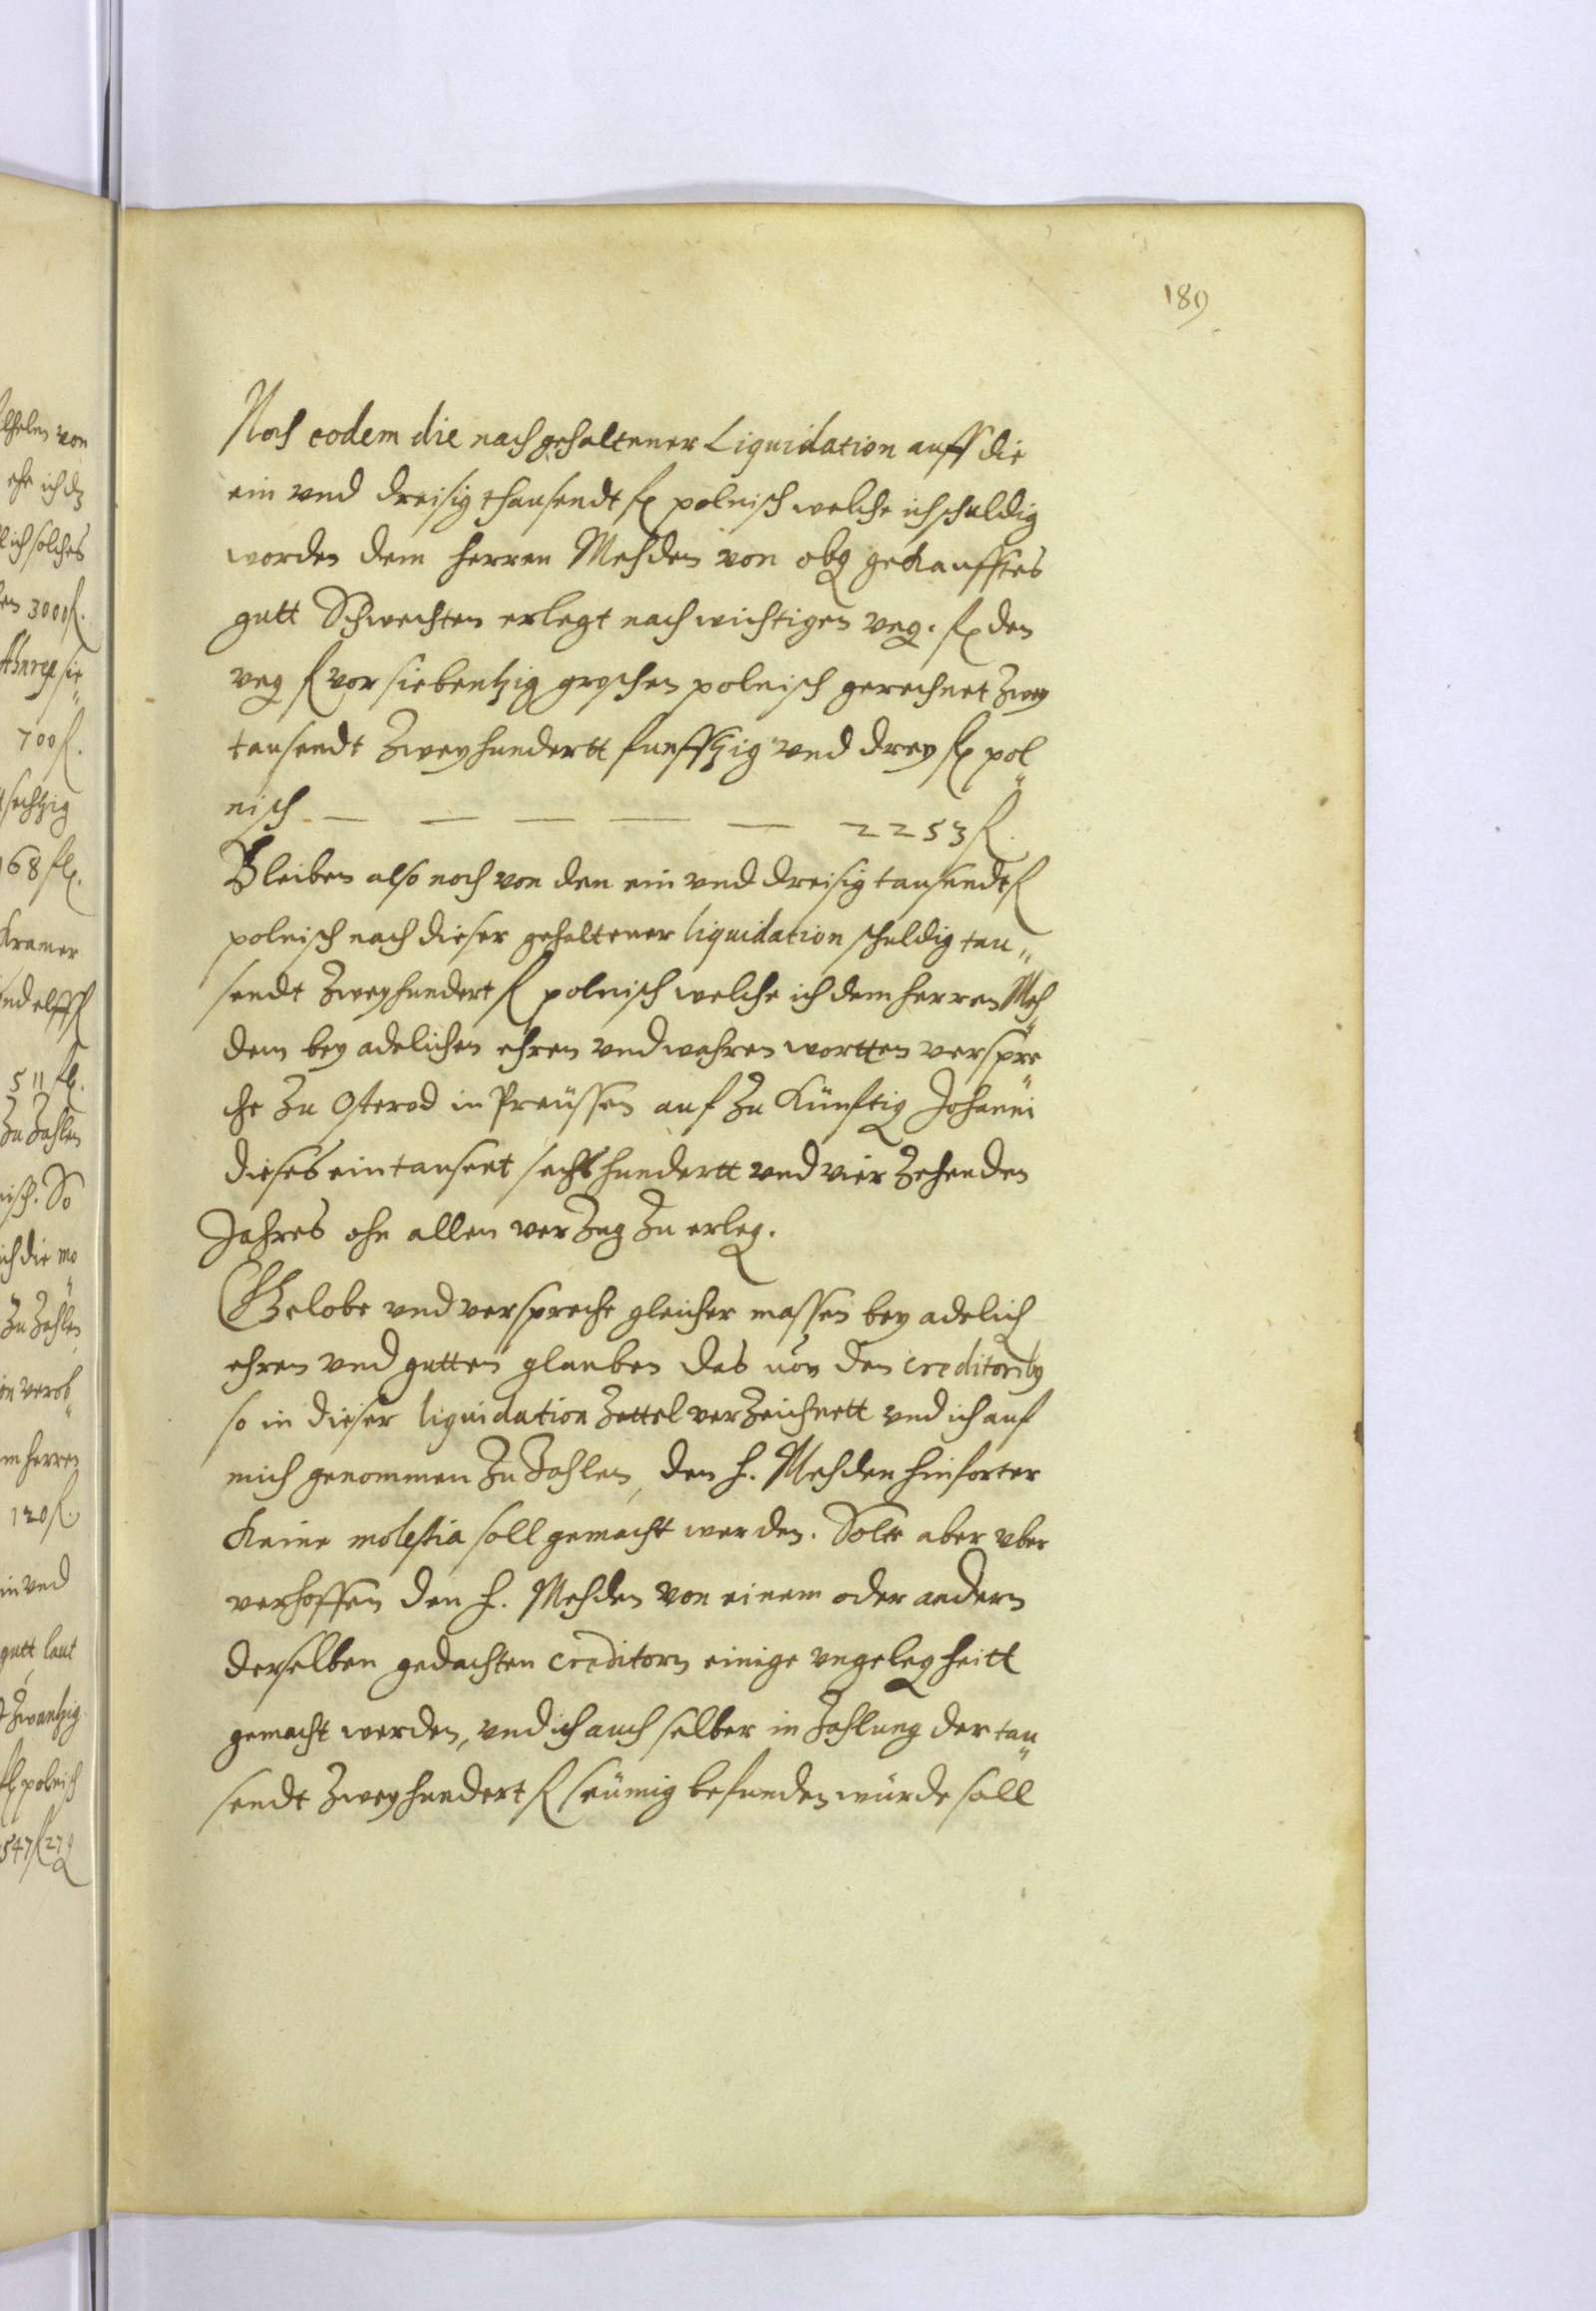 189
Noch eodem die nach gehaltener Liquidation auff die
ein vnd dreisig thausendt fl polnisch welche ich schuldig
worden dem herren Mehden von obg gekaufftes
gutt Schwechten erlegt nach wichtigen vng. fl den
vng fl vor siebentzig groschen polnisch gerechnet Zwey
tausendt Zweyhundertt funfftzig vnd drey fl pol„
nisch — — — — — 2253 fl.
Bleiben also noch von den ein vnd dreisig tausendt fl
polnisch nach dieser gehaltener liquidation schuldig tau„
sendt Zweyhundert fl polnisch welche ich dem herren Meh„
dem bey adelichen ehren vnd wahren wortten verspre„
che Zu Osterod in Preüssen auf Zu Künftig Johanni
dieses ein tausent sechshundertt vnd vier Zehenden
Jahres ohn allen verZug Zu erleg.
Gelobe vnd verspreche gleicher massen bey adelich
ehren vnd gutten glauben das von den creditorib9
so in dieser liquidation Zettel verZeichnett vnd ich auf
mich genommen Zu Zahlen, den h. Mehden hinforter
Keine molestia soll gemacht werden. Solte aber vber
verhoffen den h. Mehden von einem oder andern
derselben gedachten Creditorn einige vngelegheitt
gemacht werden, vnd ich auch selber in Zahlung der tau„
sendt Zweyhundert fl seümig befunden würde soll
von
ehr ich dz
lich solches
3000 fl.
sie„
700 fl.
sechtzig
68 fl.
Kramer
511 fl.
Zu Zahlen
nisch. So
ich die mo„
Zu Zahlen
herren
120 fl.
in vnd
gutt laut
Zwantzig
fl polnisch
547 fl 27 g